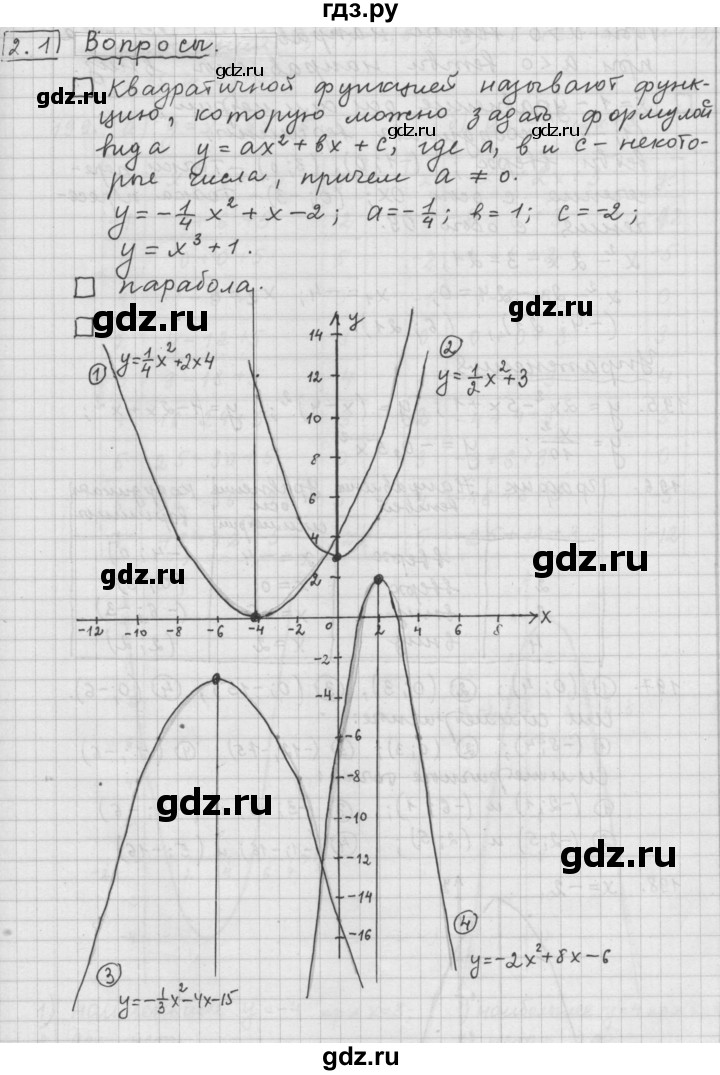 гдз.ру
2.1 Вопросы.
Квадратичной функцией называют функ-
цию, которую можно задать формулой
вида y = ax² + bx + c, где a, b и c - некото-
рые числа, причем a ≠ 0.
y = -1/4 x² + x - 2; a = -1/4; b = 1; c = -2;
y = x³ + 1.
парабола.
① y = 1/4 x² + 2x 4
② y = 1/2 x² + 3
y
14
12
10
8
6
4
2
-12 -10 -8 -6 -4 -2 0 2 4 6 8 x
-2
-4
-6
-8
-10
-12
-14
-16
③ y = -1/3 x² - 4x - 15
④ y = -2x² + 8x - 6
gdz.ru
gdz.ru
gdz.ru
gdz.ru
gdz.ru
gdz.ru
gdz.ru
gdz.ru
gdz.ru
gdz.ru
gdz.ru